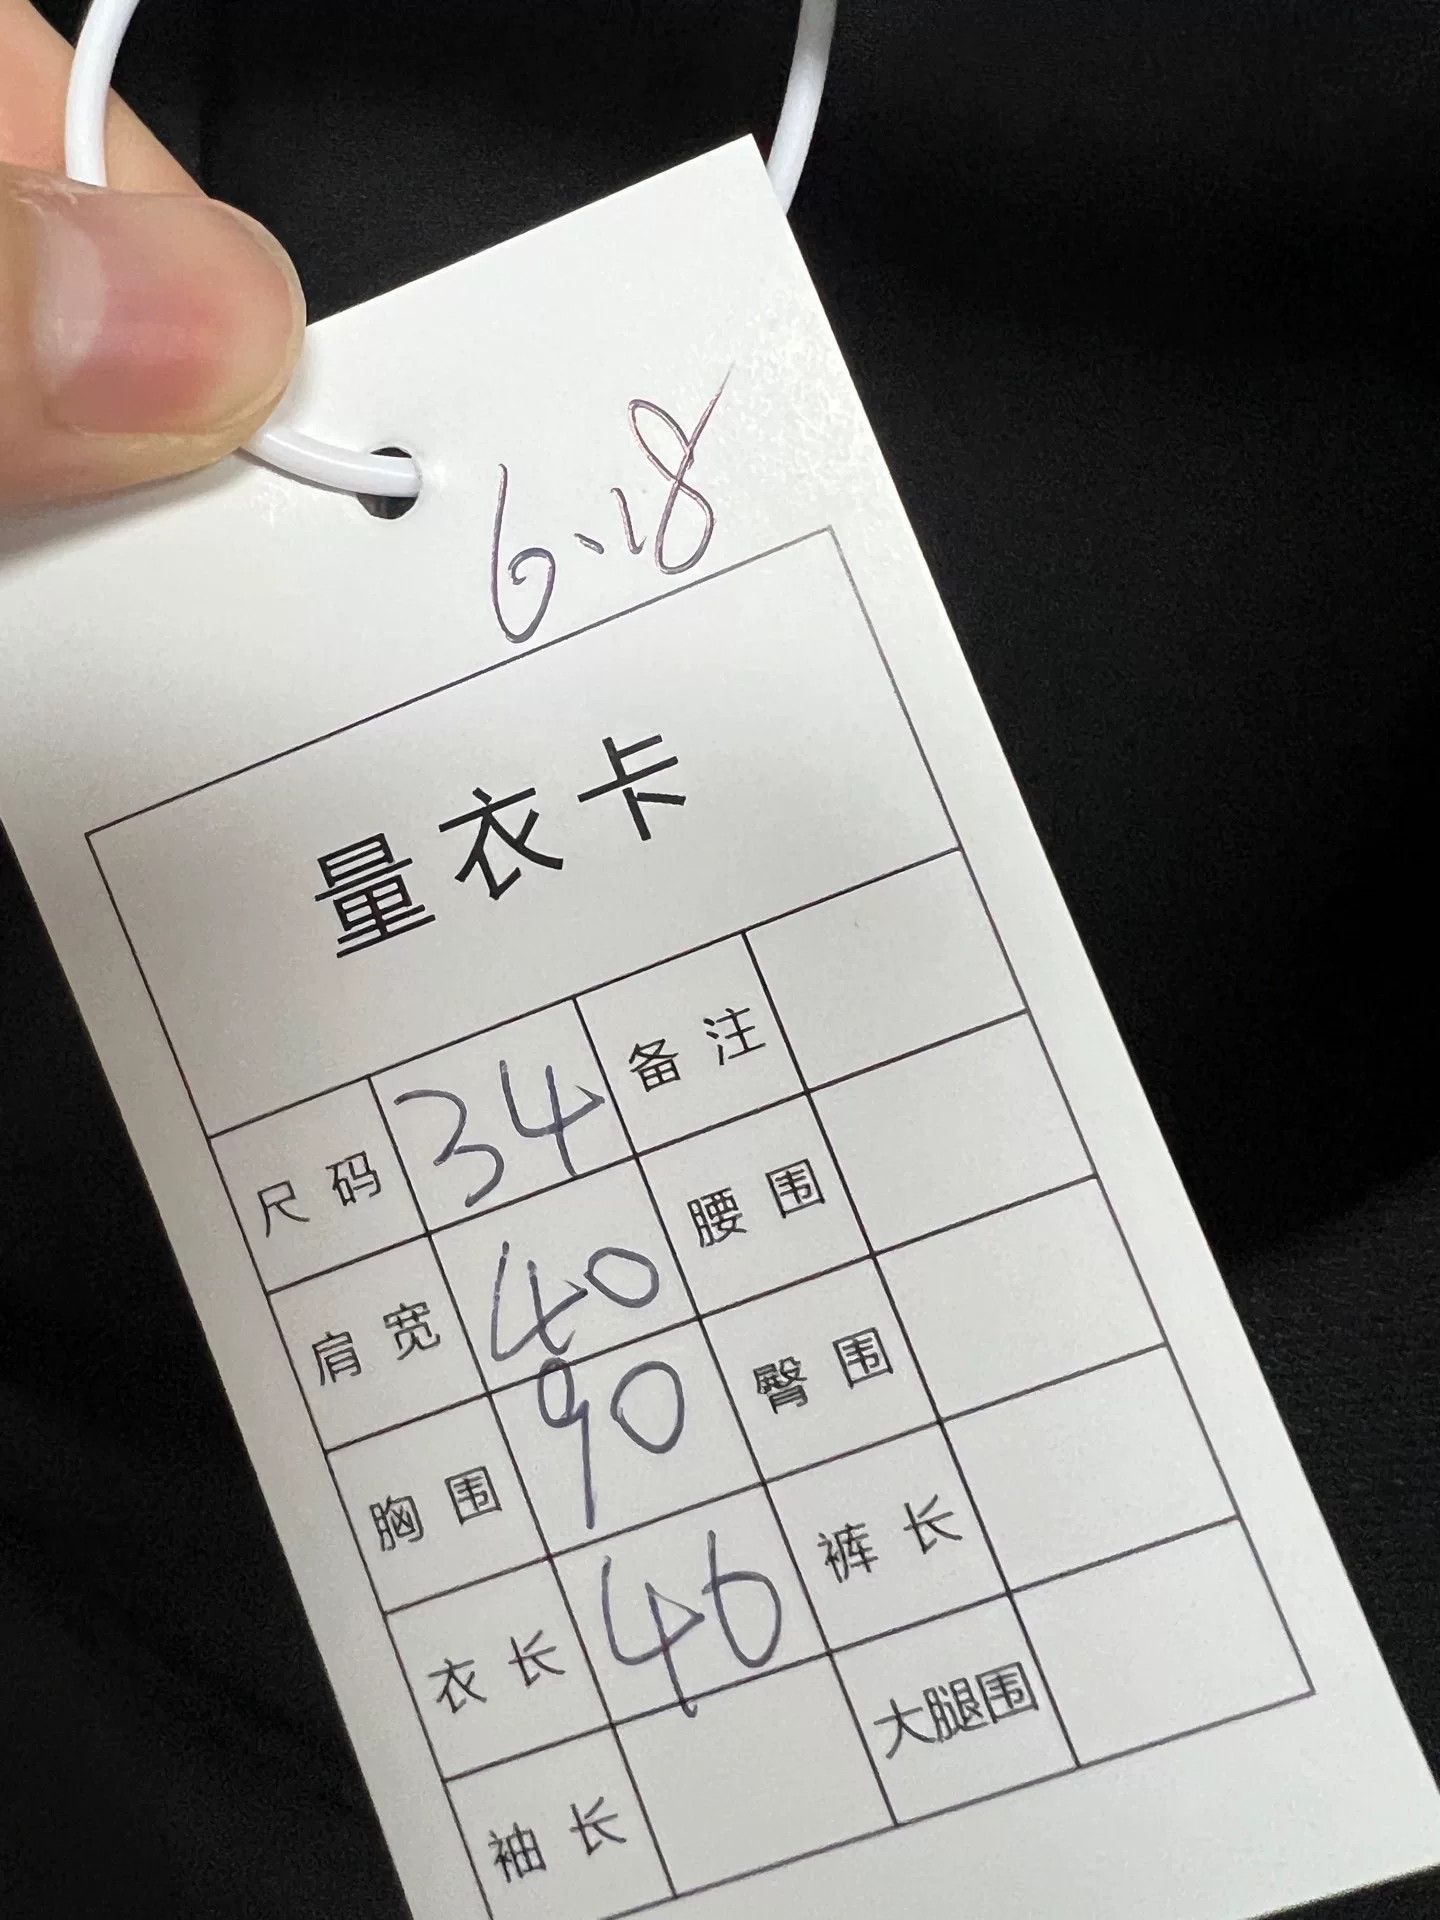 6.18
量衣卡
尺码 34 备注
肩宽 40 腰围
胸围 90 臀围
衣长 46 裤长
袖长 大腿围